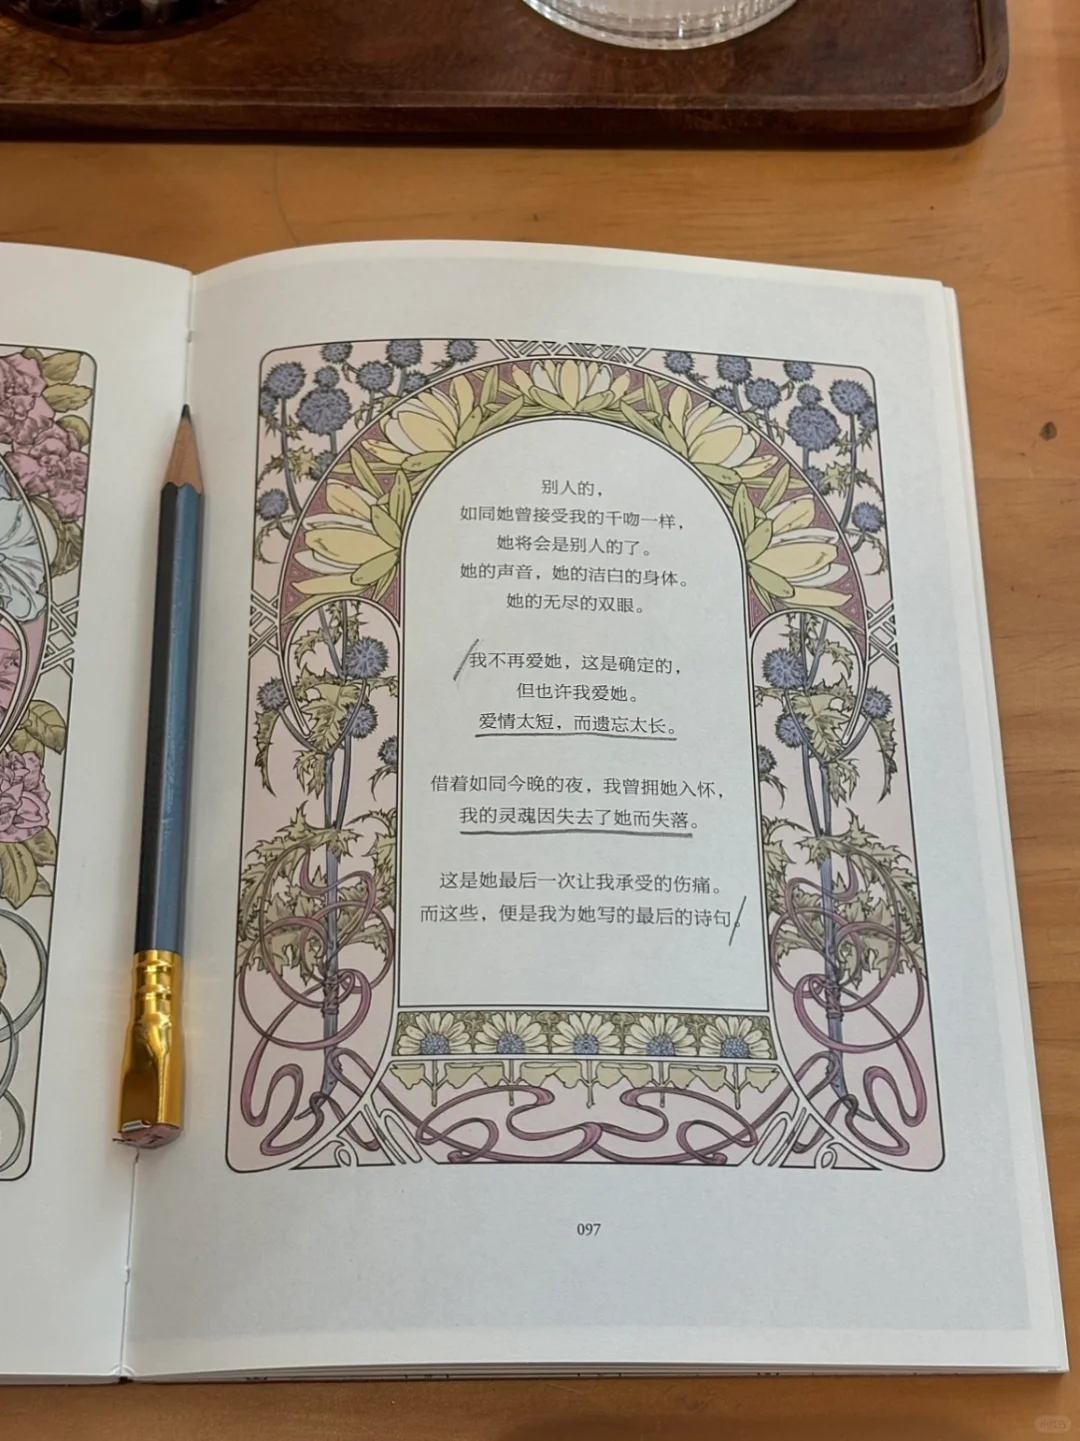 别人的，
如同她曾接受我的千吻一样，
她将会是别人的了。
她的声音，她的洁白的身体。
她的无尽的双眼。
我不再爱她，这是确定的，
但也许我爱她。
爱情太短，而遗忘太长。
借着如同今晚的夜，我曾拥她入怀，
我的灵魂因失去了她而失落。
这是她最后一次让我承受的伤痛。
而这些，便是我为她写的最后的诗句。
097